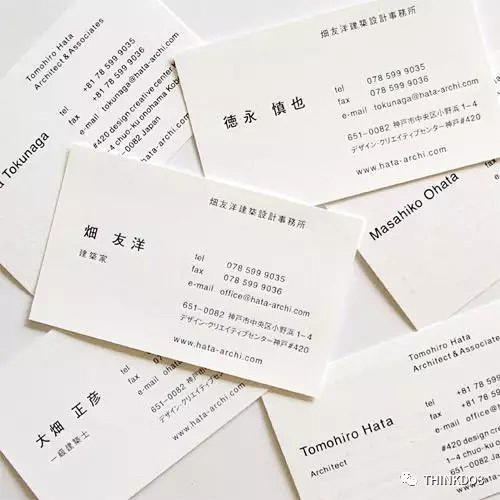 Tomohiro Hata
Architect & Associates
tel +81 78 599 9035
fax +81 78 599 9036
e-mail tokunaga@hata-archi.com
#420 design creative center
1-4 chuo-ku onohama Kob
651-0082 Japan
Tokunaga
畑友洋建築設計事務所
徳永 慎也
tel 078 599 9035
fax 078 599 9036
e-mail tokunaga@hata-archi.com
651-0082 神戸市中央区小野浜 1-4
デザイン・クリエイティブセンター神戸#420
www.hata-archi.com
Masahiko Ohata
畑友洋建築設計事務所
畑 友洋
建築家
tel 078 599 9035
fax 078 599 9036
e-mail office@hata-archi.com
651-0082 神戸市中央区小野浜 1-4
デザイン・クリエイティブセンター神戸#420
www.hata-archi.com
大畑 正彦
一級建築士
tel
fax
e-mail
651-0082
デザイン・クリエイティブセ
www.hata-archi.com
Tomohiro Hata
Architect & Associates
Tomohiro Hata
Architect
tel +81 78 599
fax +81 78 5
e-mail office@
#420 design crea
1-4 chuo-ku ono
651-0082 Ja
www.hata-a
THINKDO3